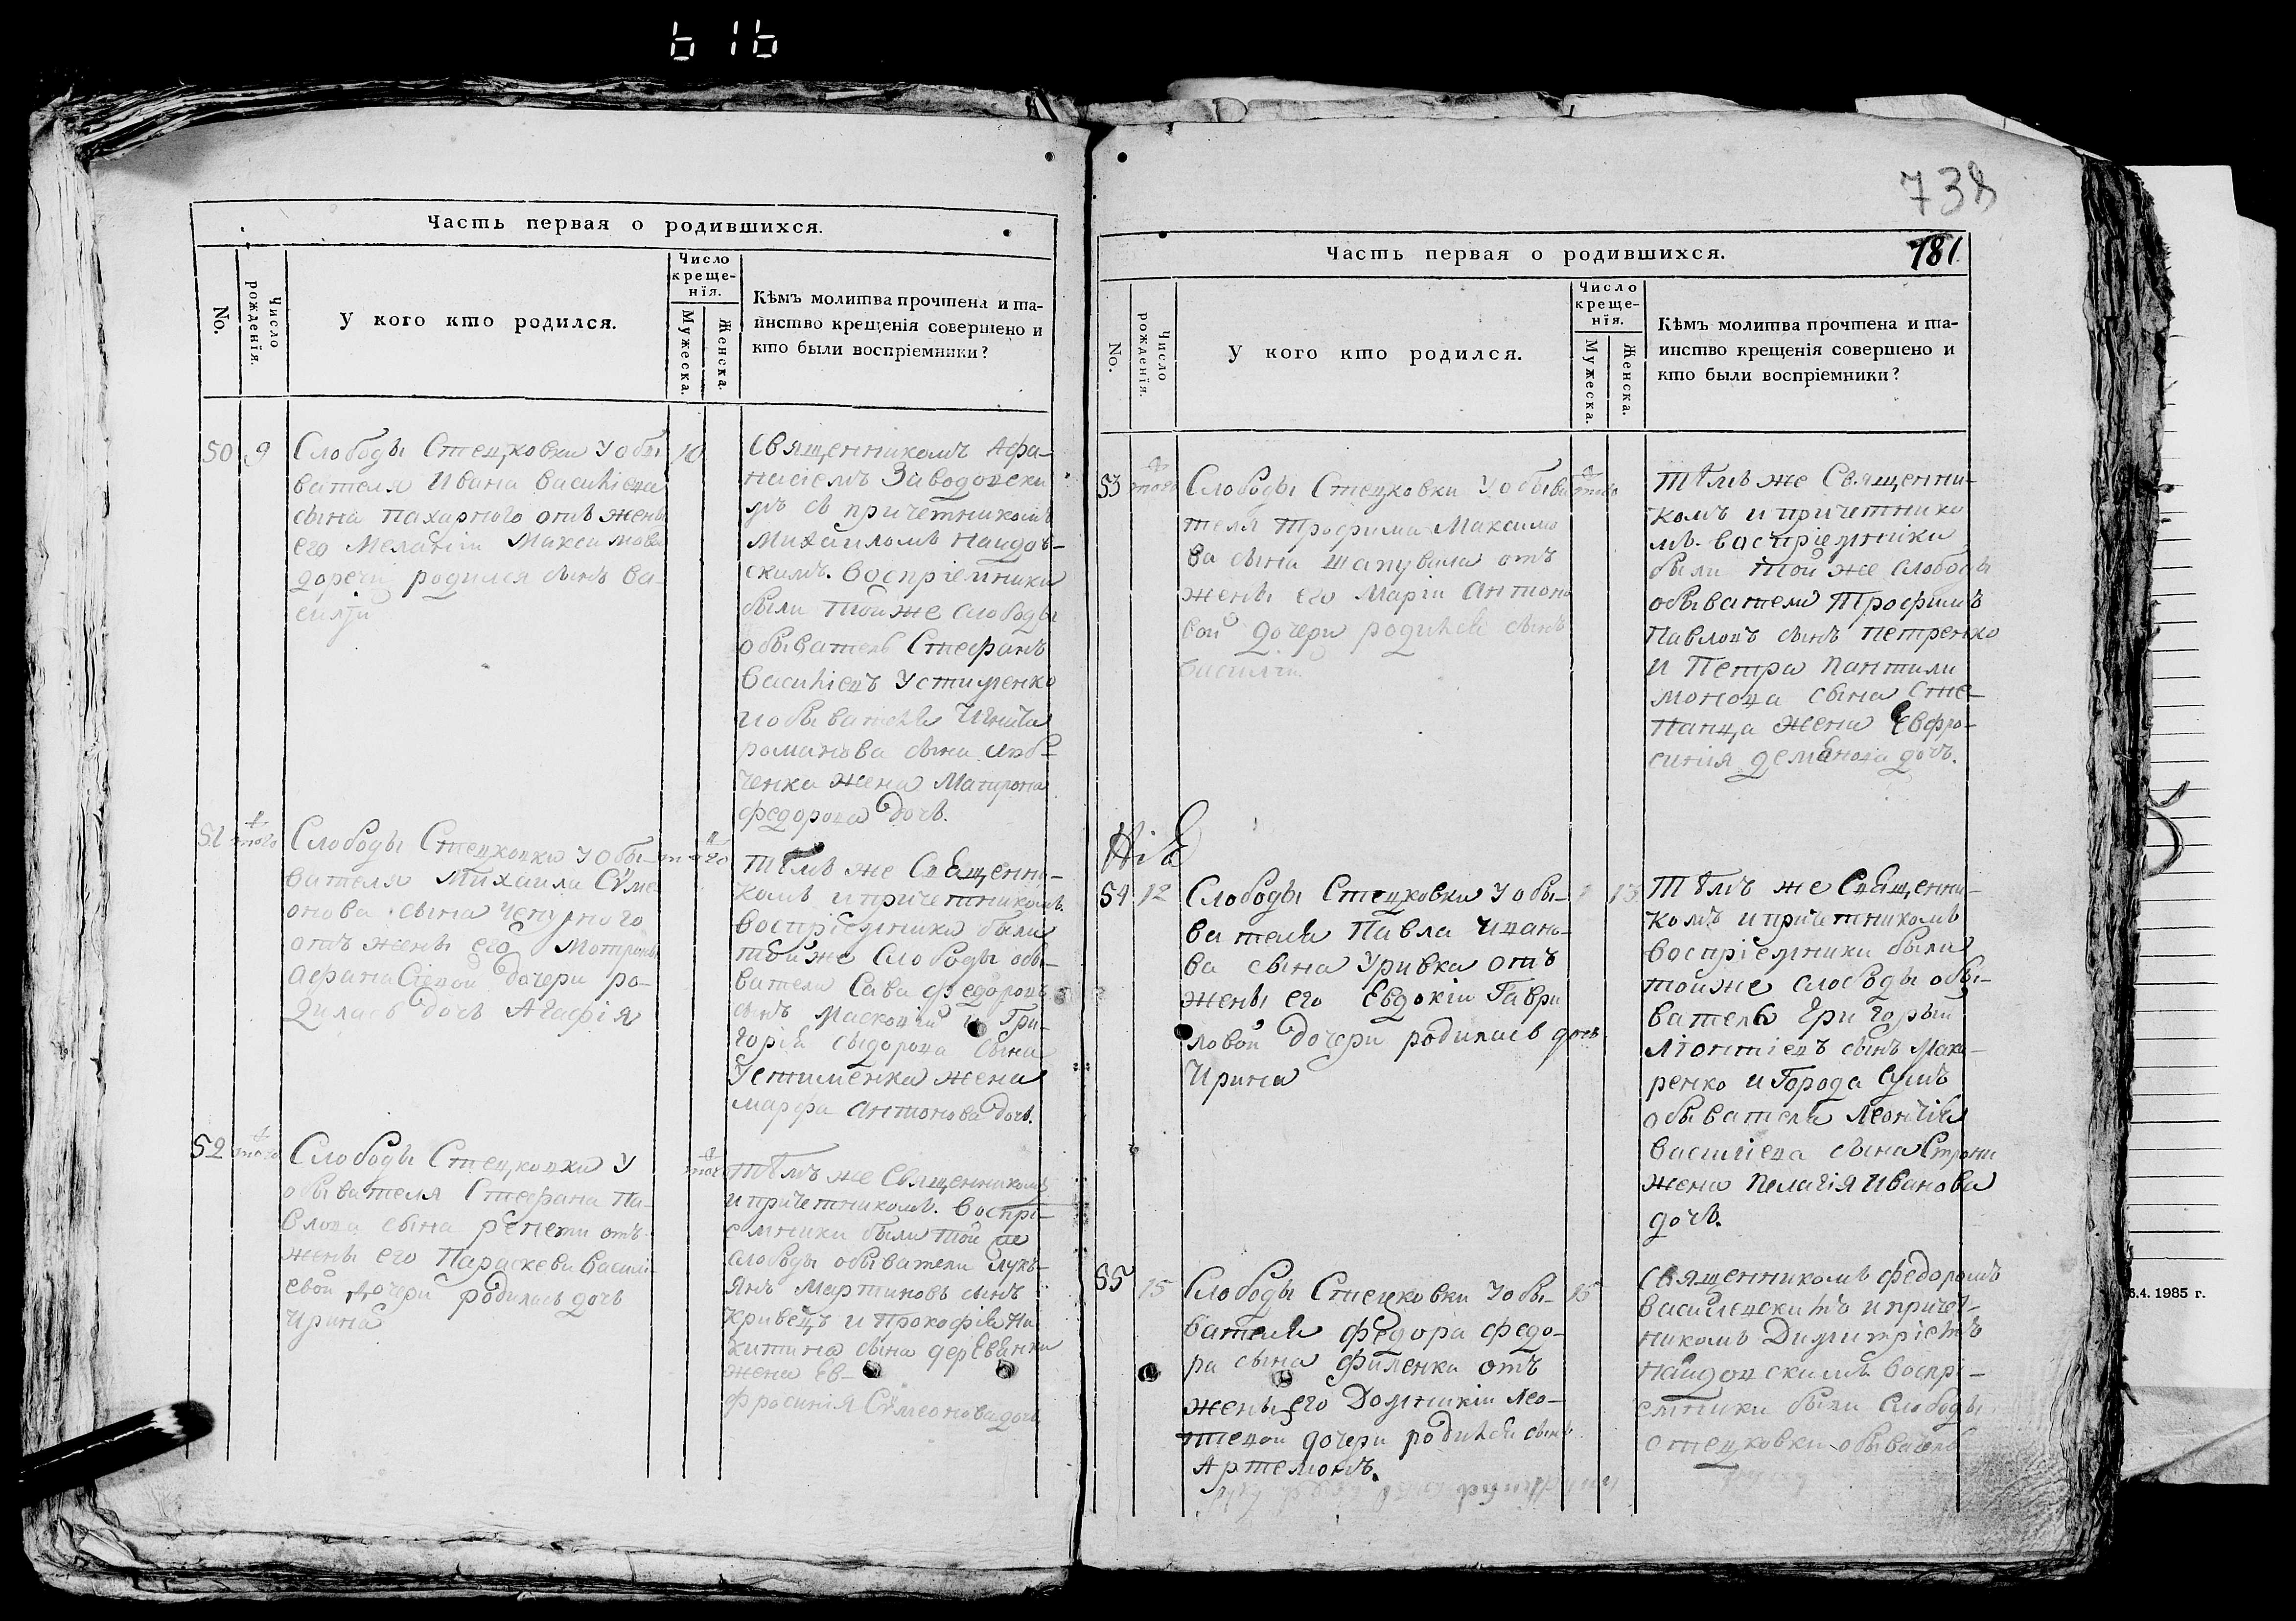 616
Часть первая о родившихся.
No.
Число рожденїя.
У кого кто родился.
Число
креще-
нїя.
Мужеска.
Женска.
Кѣмъ молитва прочтена и та-
инство крещенїя совершено и
кто были воспрїемники?
50 9 Слободы Стецковки у обы 10
вателя Ивана Василіева
сына пахарного отъ жены
его Меланіи Максимова
дочери родился сынъ Ва-
силій
Священникомъ Афа-
насіемъ Заводовски
мъ съ причетникомъ
Михаиломъ Наидов-
скимъ. воспріемники
были той же слободы
обыватель Стефанъ
Василіевъ Устименко
и обывателя Игната
романова сына
ченка жена Матрона
федорова дочь.
51 того Слободы Стецковки у обы- того
вателя Михаила Сѵме
онова сына чепурного
отъ жены его Мотроны
Афанасіевой дочери ро-
дилась дочь Агафія
Тѣмъ же Священни-
комъ и причетникомъ.
воспріемники были
той же Слободы обы-
ватели Сава федоровъ
сынъ Масковій и Гри-
горія сидорова сына
Устименка жена
марфа антонова дочь.
52 того Слободы Стецковки у того
обывателя Стефана Па-
влова сына репети отъ
жены его Параскеви Васили
евой дочери родилась дочь
Ирина
тѣмъ же священникомъ
и причетникомъ. воспрі-
емники были той же
слободы обыватели лукъ-
янъ Мартиновъ сынъ
Кривецъ и Прокофія Ни
китина сына деревянки
жена Ев-
фросинія Сѵмеонова дочь
738
781
Часть первая о родившихся.
No.
Число рожденїя.
У кого кто родился.
Число
креще-
нїя.
Мужеска.
Женска.
Кѣмъ молитва прочтена и та-
инство крещенїя совершено и
кто были воспрїемники?
53 того Слободы Стецковки у обыва того
теля Трофима Максимо
ва сына шапувала отъ
жены его Маріи Антоно
вой дочери родился сынъ
василій
Тѣмъ же Священни-
комъ и причетнико
мъ. воспріемники
были той же слободы
обыватели Трофимъ
Павловъ сынъ Петренко
и Петра Пантили
монова сына Сте-
панца жена Евфро-
синія демянова дочь.
54 12 Слободы Стецковки у обы- 13
вателя Павла Ивано-
ва сына Уривка отъ
жены его Евдокіи Гаври
ловой дочери родилась дочь
Ирина
Тѣмъ же Священни-
комъ и причетникомъ
воспріемники были
той же слободы обы-
ватель Григорый
Леонтіевъ сынъ Мака-
ренко и Города Сумъ
обывателя Леонтія
василіева сына
жена Пелагія Иванова
дочь.
55 15 Слободы Стецковки у обы- 15
вателя федора федо-
ра сына филенки отъ
жены его Домникіи Лео-
нтіевой дочери родился сынъ
Артемонъ.
Священникомъ федоромъ
василевскимъ и причет-
никомъ Димитріемъ
Наидовскимъ воспрі-
емники были слободы
стецковки обыватель
6.4. 1985 г.